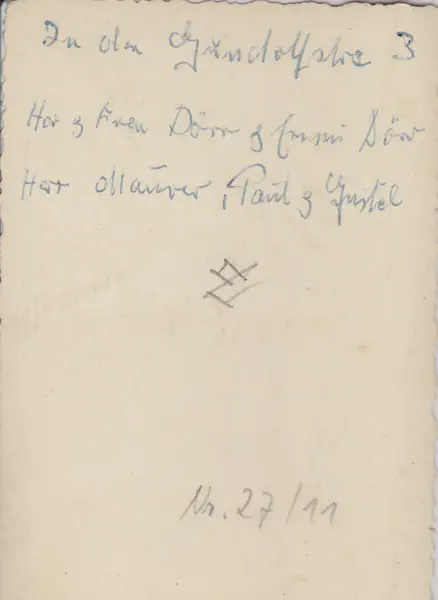 In der Gundolfstr. 3
Herr & Frau Dörr & Emmi Dörr
Herr Maurer, Paul & Gustel
Nr. 27/11